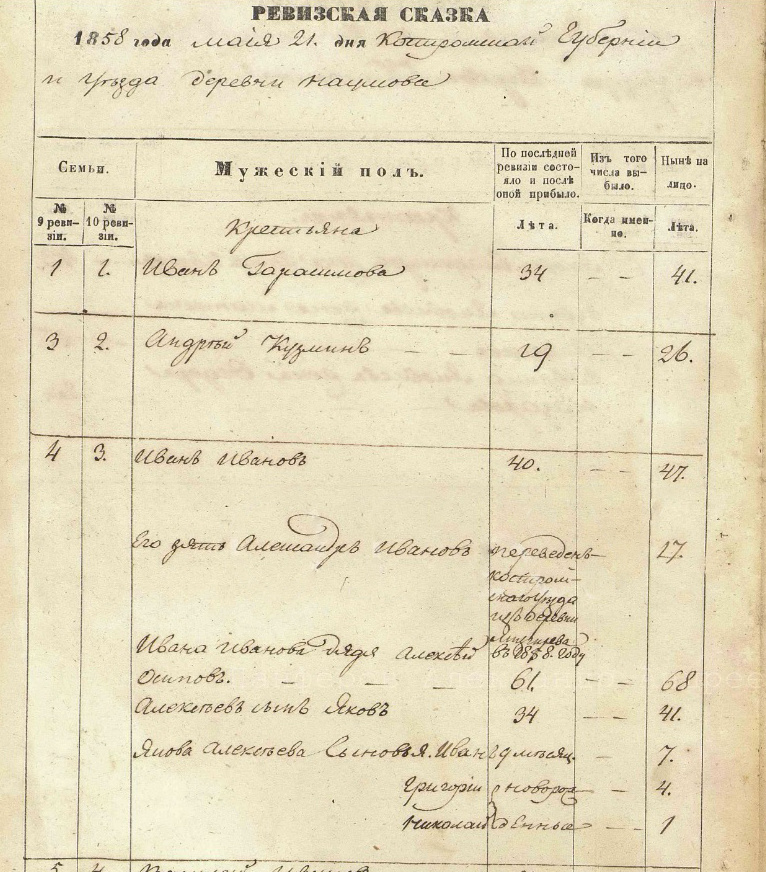 РЕВИЗСКАЯ СКАЗКА
1858 года маія 21. дня Костромской Губерніи
и уѣзда деревни Наумова
Семьи.
Мужескій полъ.
По послѣдней ревизіи состояло и послѣ оной прибыло.
Изъ того числа выбыло.
Нынѣ на лицо.
№ 9 ревизіи.
№ 10 ревизіи.
Лѣта.
Когда именно.
Лѣта.
Крестьяна
1 1. Иванъ Гарасимова 34 — — 41.
3 2. Андрѣй Кузминъ — — 19 — — 26.
4 3. Иванъ Ивановъ 40. — — 47.
Его зять Александръ Ивановъ переведенъ 27.
костром-
скаго уѣзда
изъ деревни
въ 1858. году
Ивана Иванова дядя Алексѣй
Осиповъ. — — — — 61. — — 68
Алексѣевъ сынъ Яковъ 34 — — 41.
Якова Алексѣева Сыновья. Иванъ 9 мѣсяц. — — 7.
Григорій новорож — — 4.
Николай денные — — 1
5 4. Ивановъ